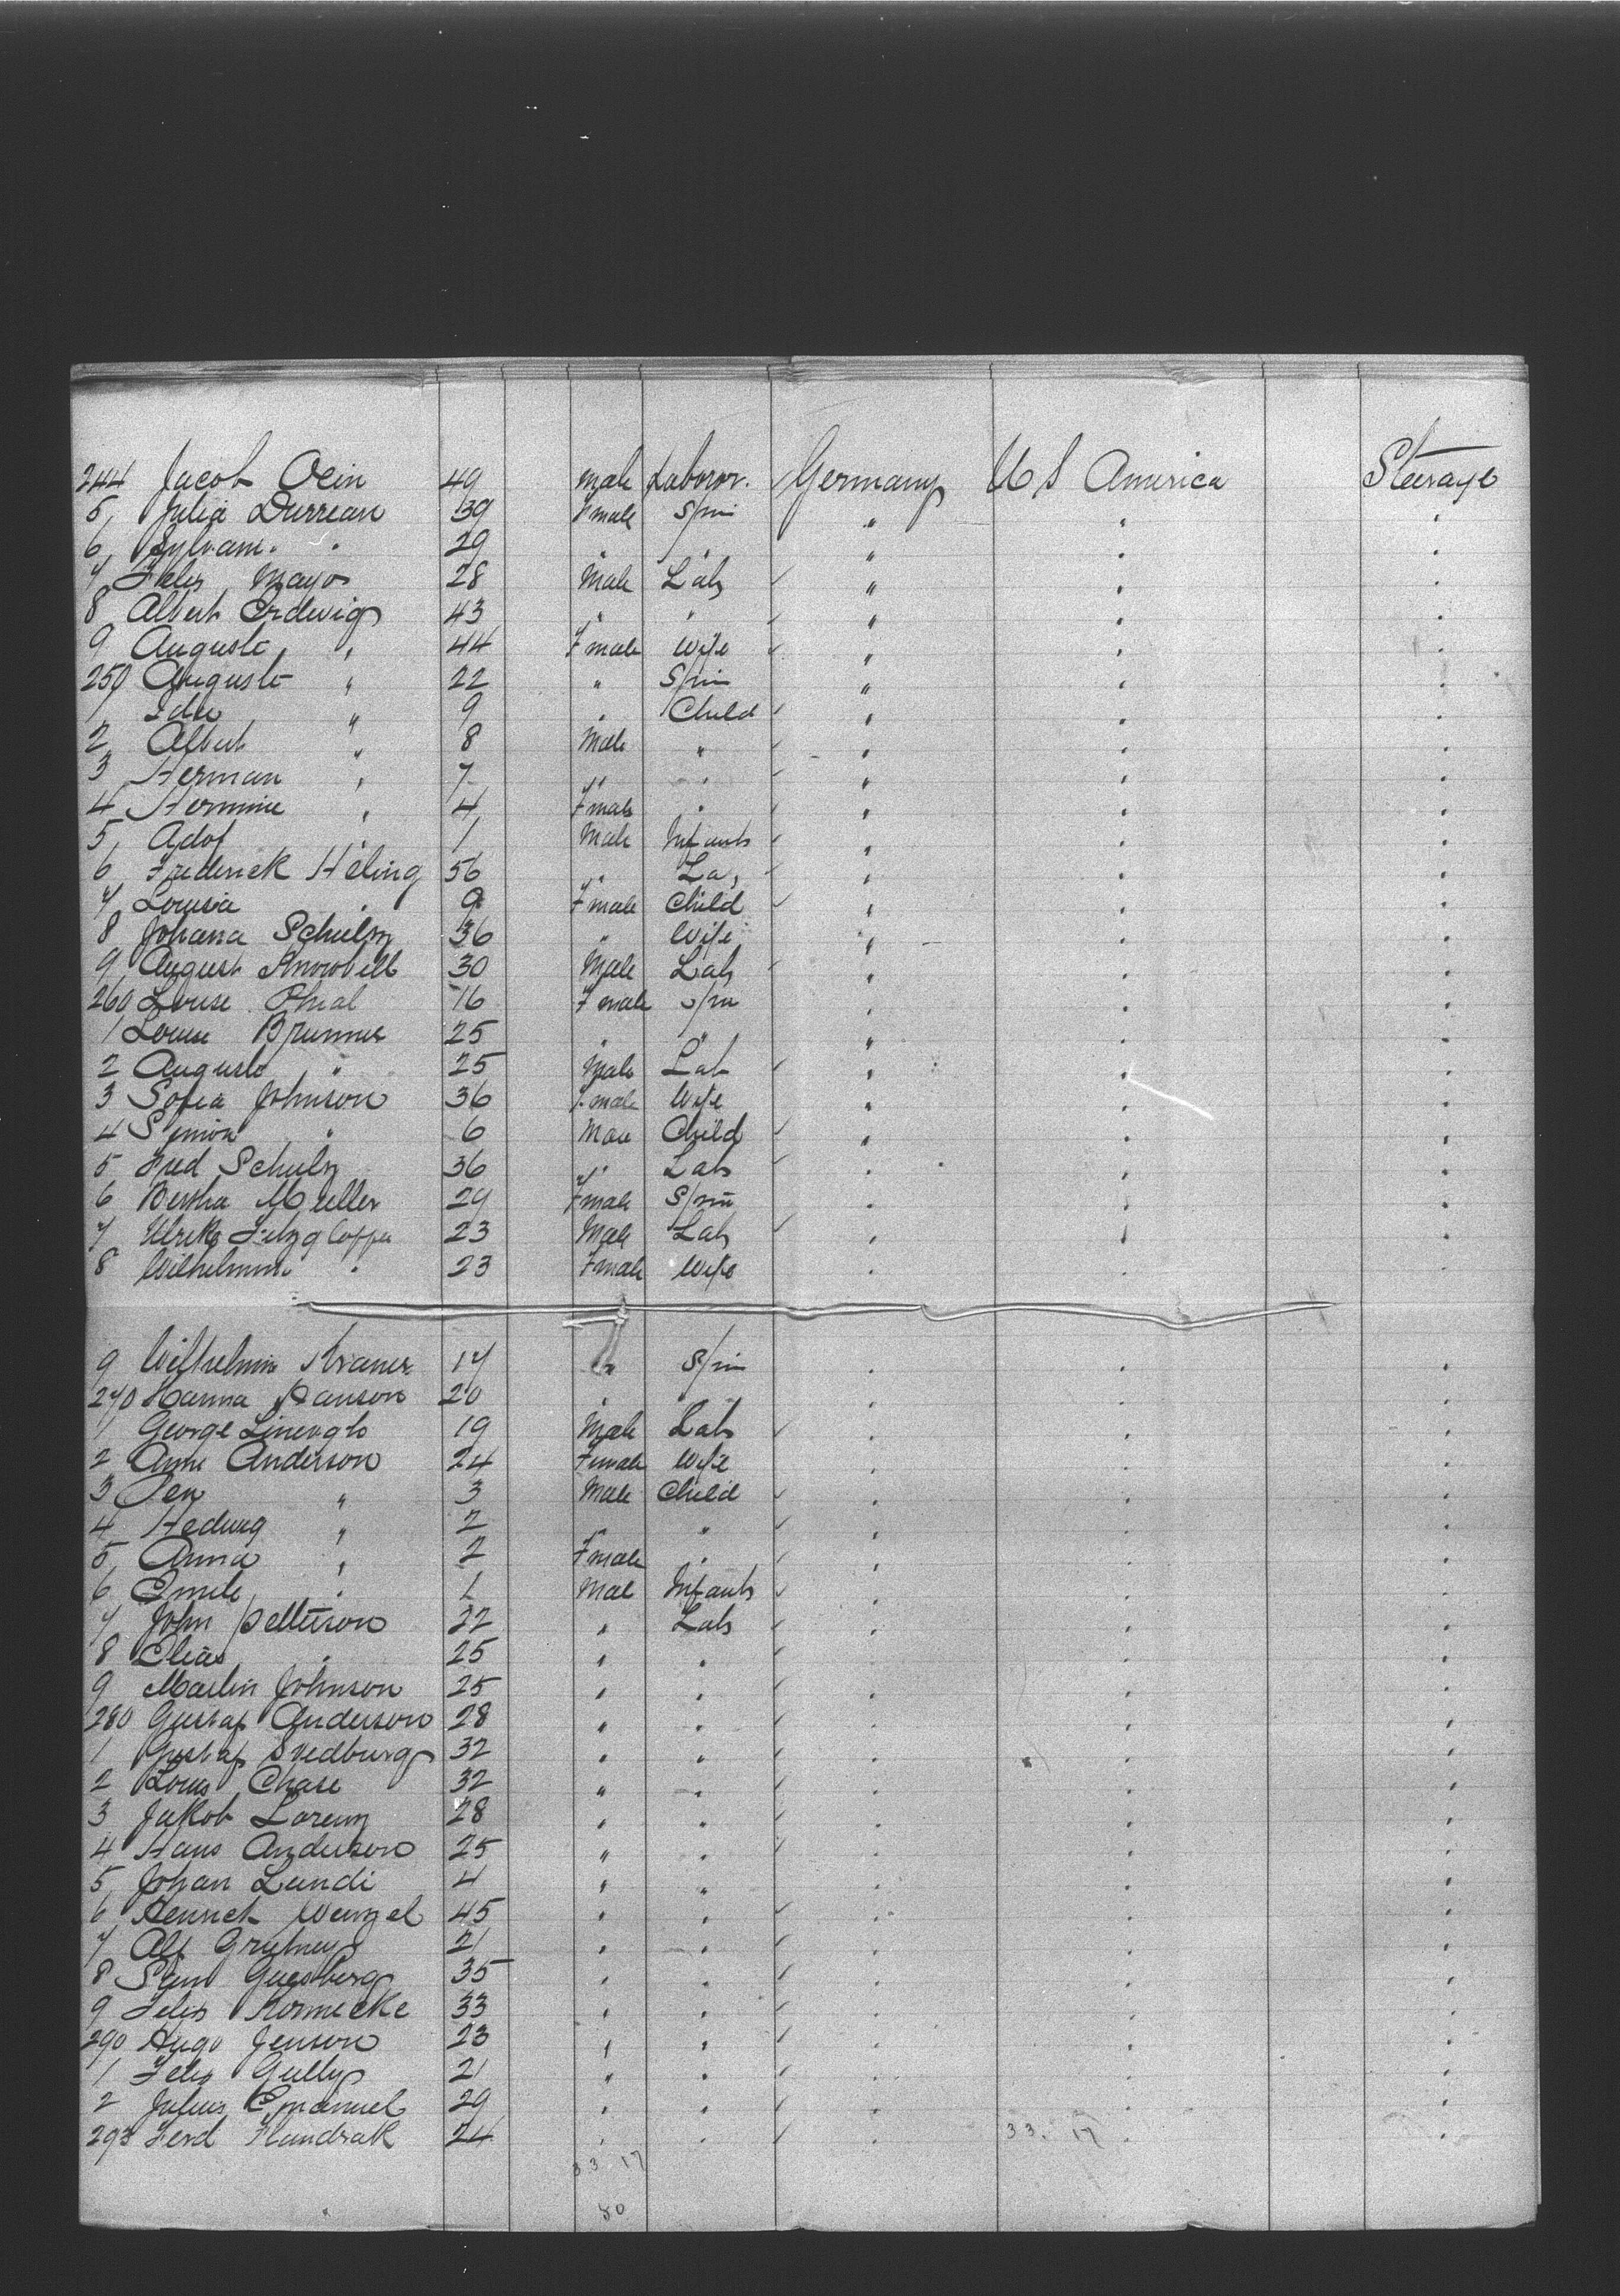 244 Jacob Oein 49 Male Laborer. Germany U S America Steerage
5, Julia Durrean 39 Fmale Spin " " "
6, Sylvam. " 29 " " " " "
7 Felix Mayos 28 Male Lab " " "
8 Albert Erdwig 43 " " " " "
9 Auguste " 44 Fmale Wife " " "
250 Auguste " 22 " Spin " " "
1, Ida " 9 " Child " " "
2, Albert " 8 Male " " " "
3 Herman " 7 " " " " "
4 Hermine " 4 Fmale " " " "
5, Adof " 1 Male Infants " " "
6 Frederick Heling 56 " La, " " "
7 Louisa " 9 Fmale Child " " "
8 Johana Schulz 36 " Wife " " "
9 August 30 Male Lab " " "
260 Louise 16 Fmale Spin " " "
1 Louise Brunner 25 " " " " "
2 Auguste " 25 Male Lab " " "
3 Sofia Johnson 36 Fmale Wife " " "
4 Simon " 6 Male Child " " "
5 Fred Schulz 36 " Lab " " "
6 Bertha Mueller 29 Fmale Spin " " "
7 Ulrik 23 Male Lab " " "
8 Wilhelmin " 23 Fmale Wife " " "
9 Wilhelmin Kramer 17 " Spin " " "
270 Hanna Hanson 20 " " " " "
1 George 19 Male Lab " " "
2 Anne Anderson 24 Female Wife " " "
3 Pen " 3 Male Child " " "
4 Hedwig " 2 " " " " "
5, Anna " 2 Fmale " " " "
6 Emile " 1 Male Infants " " "
7 John Petterson 22 " Lab " " "
8 Elias " 25 " " " " "
9 Martin Johnson 25 " " " " "
280 Gustaf Anderson 28 " " " " "
1 Gustaf Svedburg 32 " " " " "
2 Louis Chase 32 " " " " "
3 Jakob Lorenz 28 " " " " "
4 Hans Anderson 25 " " " " "
5 Johan Lundi 4 " " " " "
6 Henrich Wenzel 45 " " " " "
7 Alf 21 " " " " "
8 35 " " " " "
9 Felix Kornecke 33 " " " " "
290 Hugo Jenson 23 " " " " "
1 Felix Gully 21 " " " " "
2 Julius Emanuel 29 " " " " "
293 Ferd Flandrak 24 " " " 33. 17 " "
33 17
80